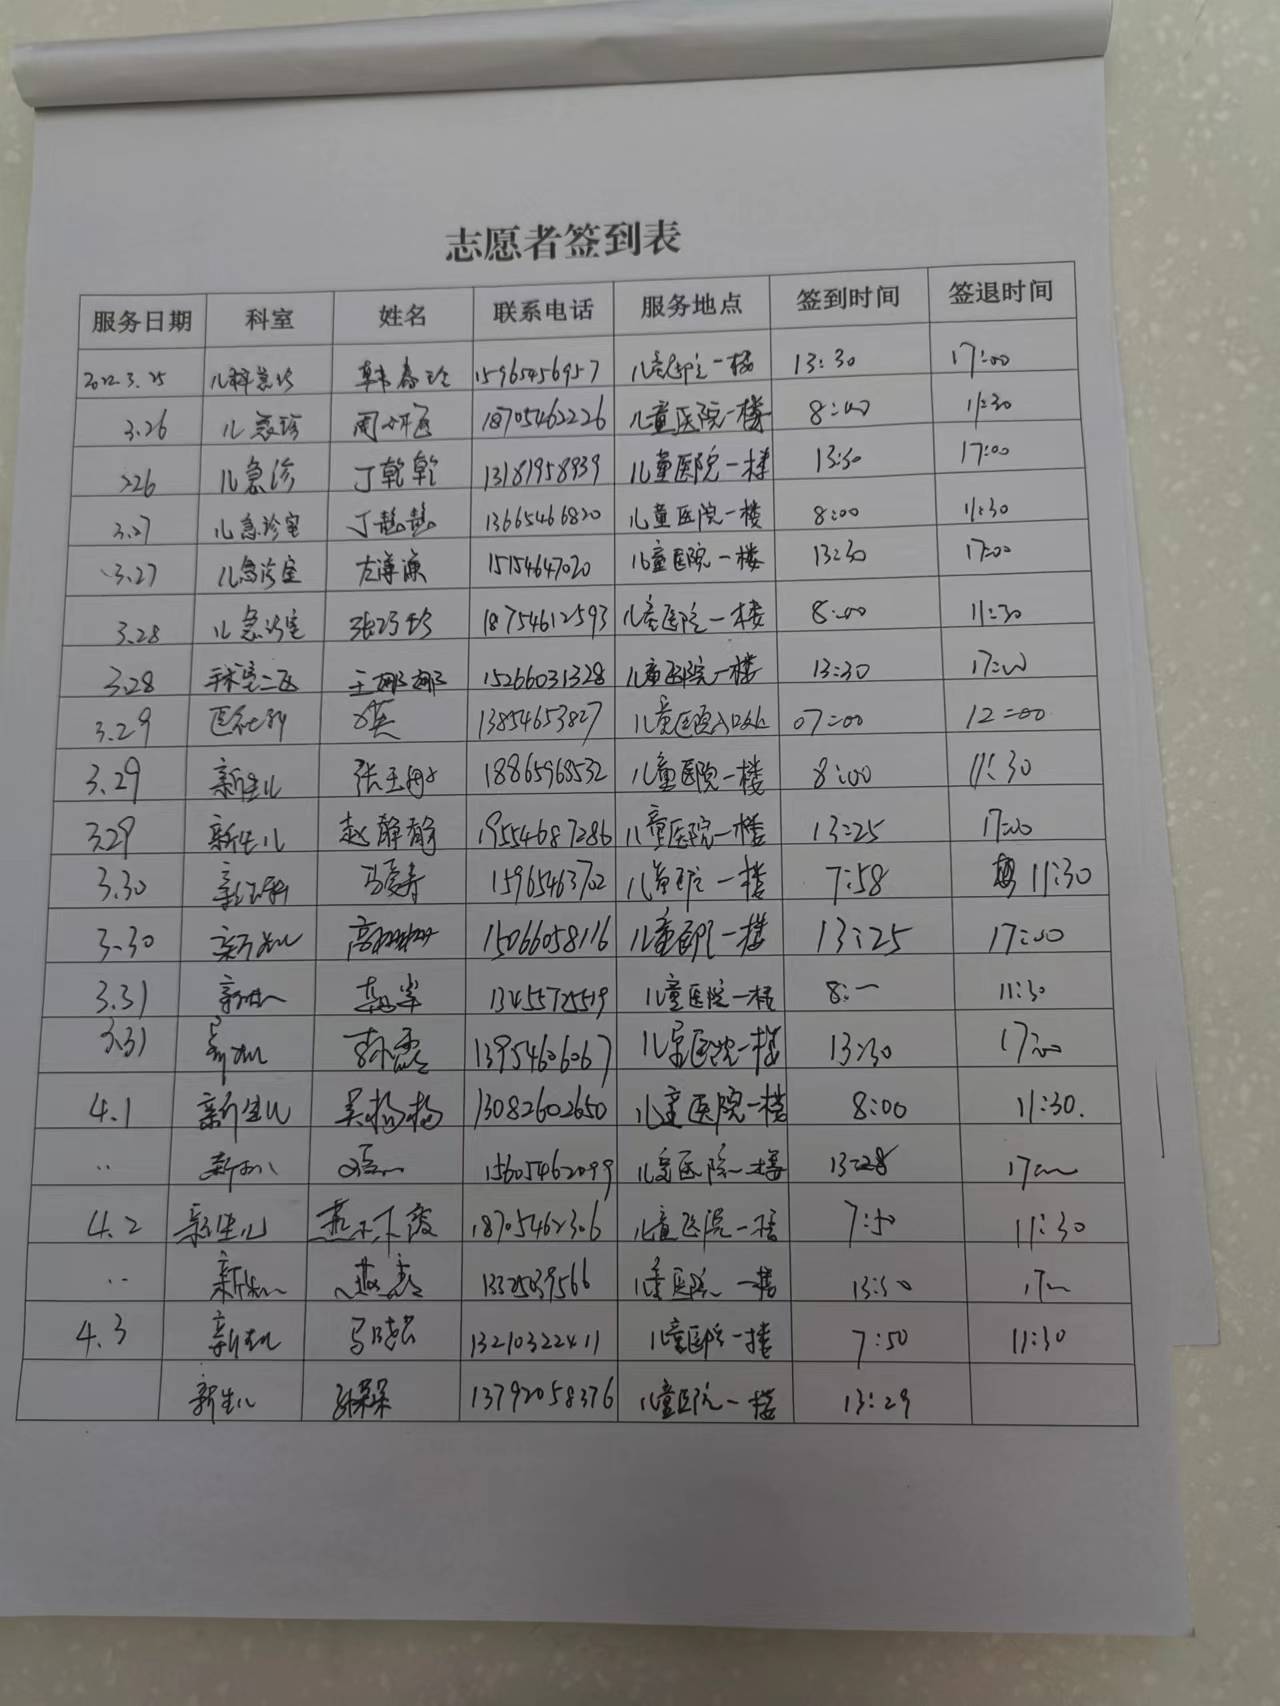 志愿者签到表
服务日期 科室 姓名 联系电话 服务地点 签到时间 签退时间
2022.3.25 儿科急诊 韩春玲 15965456957 儿童医院一楼 13:30 17:00
3.26 儿急诊 周妍 18705462226 儿童医院一楼 8:00 11:30
3.26 儿急诊 丁乾乾 13181958939 儿童医院一楼 13:30 17:00
3.27 儿急诊室 丁慧慧 13665466820 儿童医院一楼 8:00 11:30
3.27 儿急诊室 15154647020 儿童医院一楼 13:30 17:00
3.28 儿急诊室 18754612593 儿童医院一楼 8:00 11:30
3.28 手术室二区 王娜娜 15266031328 儿童医院一楼 13:30 17:00
3.29 13854653827 儿童医院入口处 07:00 12:00
3.29 新生儿 18865968532 儿童医院一楼 8:00 11:30
3.29 新生儿 赵静静 19554687286 儿童医院一楼 13:25 17:00
3.30 新生儿科 15965463702 儿童医院一楼 7:58 11:30
3.30 新生儿 高姗姗 15066058116 儿童医院一楼 13:25 17:00
3.31 新生儿 13455725519 儿童医院一楼 8:一 11:30
3.31 新生儿 孙磊 13954606067 儿童医院一楼 13:30 17:00
4.1 新生儿 吴杨杨 13082602650 儿童医院一楼 8:00 11:30.
.. 新生儿 15605462099 儿童医院一楼 13:28
4.2 新生儿 18705462306 儿童医院一楼 7:50 11:30
.. 新生儿 儿童医院一楼 13:30
4.3 新生儿 13210322411 儿童医院一楼 7:50 11:30
新生儿 13792058376 儿童医院一楼 13:29